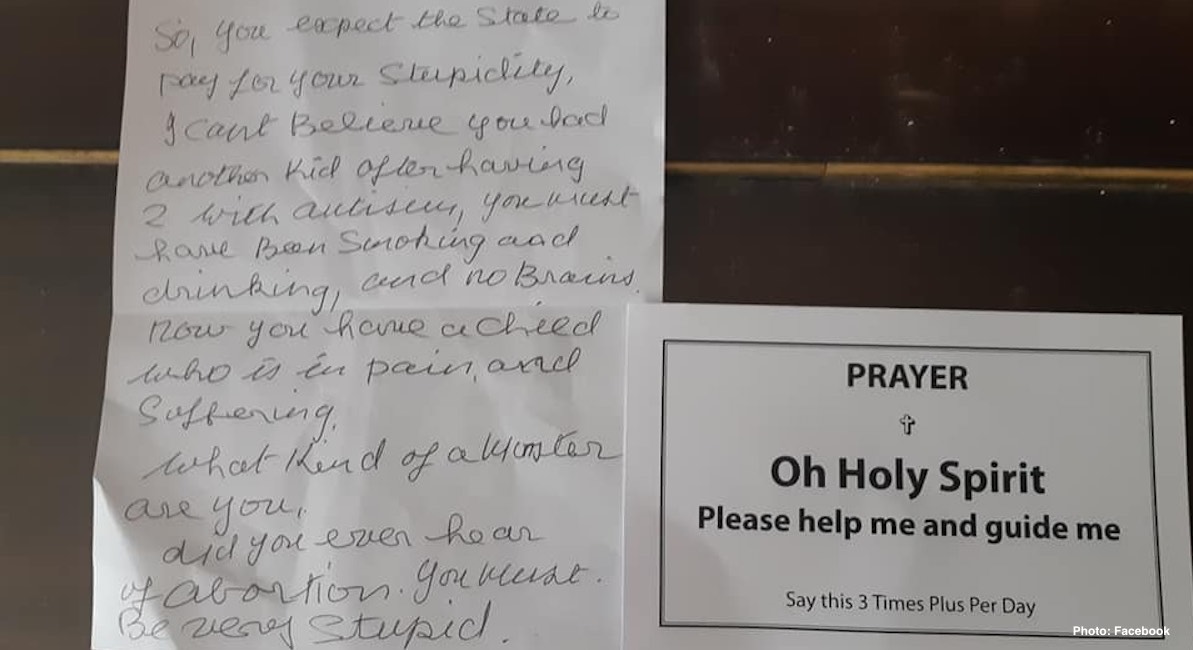 So, you expect the State to
pay for your Stupidity,
I cant Believe you had
another Kid after having
2 with autism, you must
have Been Smoking and
drinking, and no Brains.
now you have a cheed
who is in pain, and
Suffering.
what Kind of a Monster
are you,
did you ever hear
of abortion. you must.
Be very Stupid.
PRAYER
Oh Holy Spirit
Please help me and guide me
Say this 3 Times Plus Per Day
Photo: Facebook